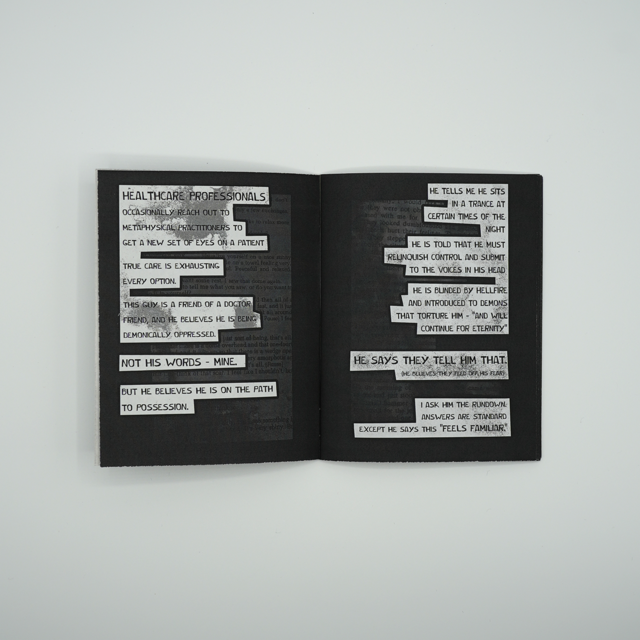 HEALTHCARE PROFESSIONALS
OCCASIONALLY REACH OUT TO
METAPHYSICAL PRACTITIONERS TO
GET A NEW SET OF EYES ON A PATIENT
TRUE CARE IS EXHAUSTING
EVERY OPTION.
THIS GUY IS A FRIEND OF A DOCTOR
FRIEND, AND HE BELIEVES HE IS BEING
DEMONICALLY OPPRESSED.
NOT HIS WORDS - MINE.
BUT HE BELIEVES HE IS ON THE PATH
TO POSSESSION.
HE TELLS ME HE SITS
IN A TRANCE AT
CERTAIN TIMES OF THE
NIGHT
HE IS TOLD THAT HE MUST
RELINQUISH CONTROL AND SUBMIT
TO THE VOICES IN HIS HEAD
HE IS BLINDED BY HELLFIRE
AND INTRODUCED TO DEMONS
THAT TORTURE HIM - "AND WILL
CONTINUE FOR ETERNITY"
HE SAYS THEY TELL HIM THAT.
(HE BELIEVES THEY FEED OFF HIS FEAR)
I ASK HIM THE RUNDOWN.
ANSWERS ARE STANDARD
EXCEPT HE SAYS THIS "FEELS FAMILIAR."